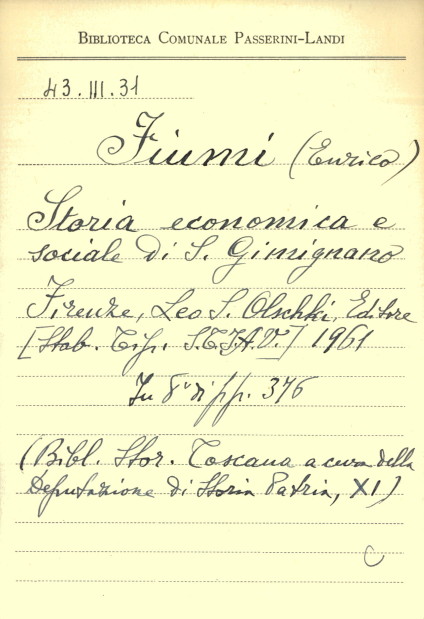 BIBLIOTECA COMUNALE PASSERINI-LANDI
43.III.31
Fiumi (Enrico)
Storia economica e
sociale di S. Gimignano
Firenze, Leo S. Olschki, Editore
[Stab. Tip. S.T.I.A.V.] 1961
In 8° di pp. 376
(Bibl. Stor. Toscana a cura della
Deputazione di Storia Patria, XI)
C